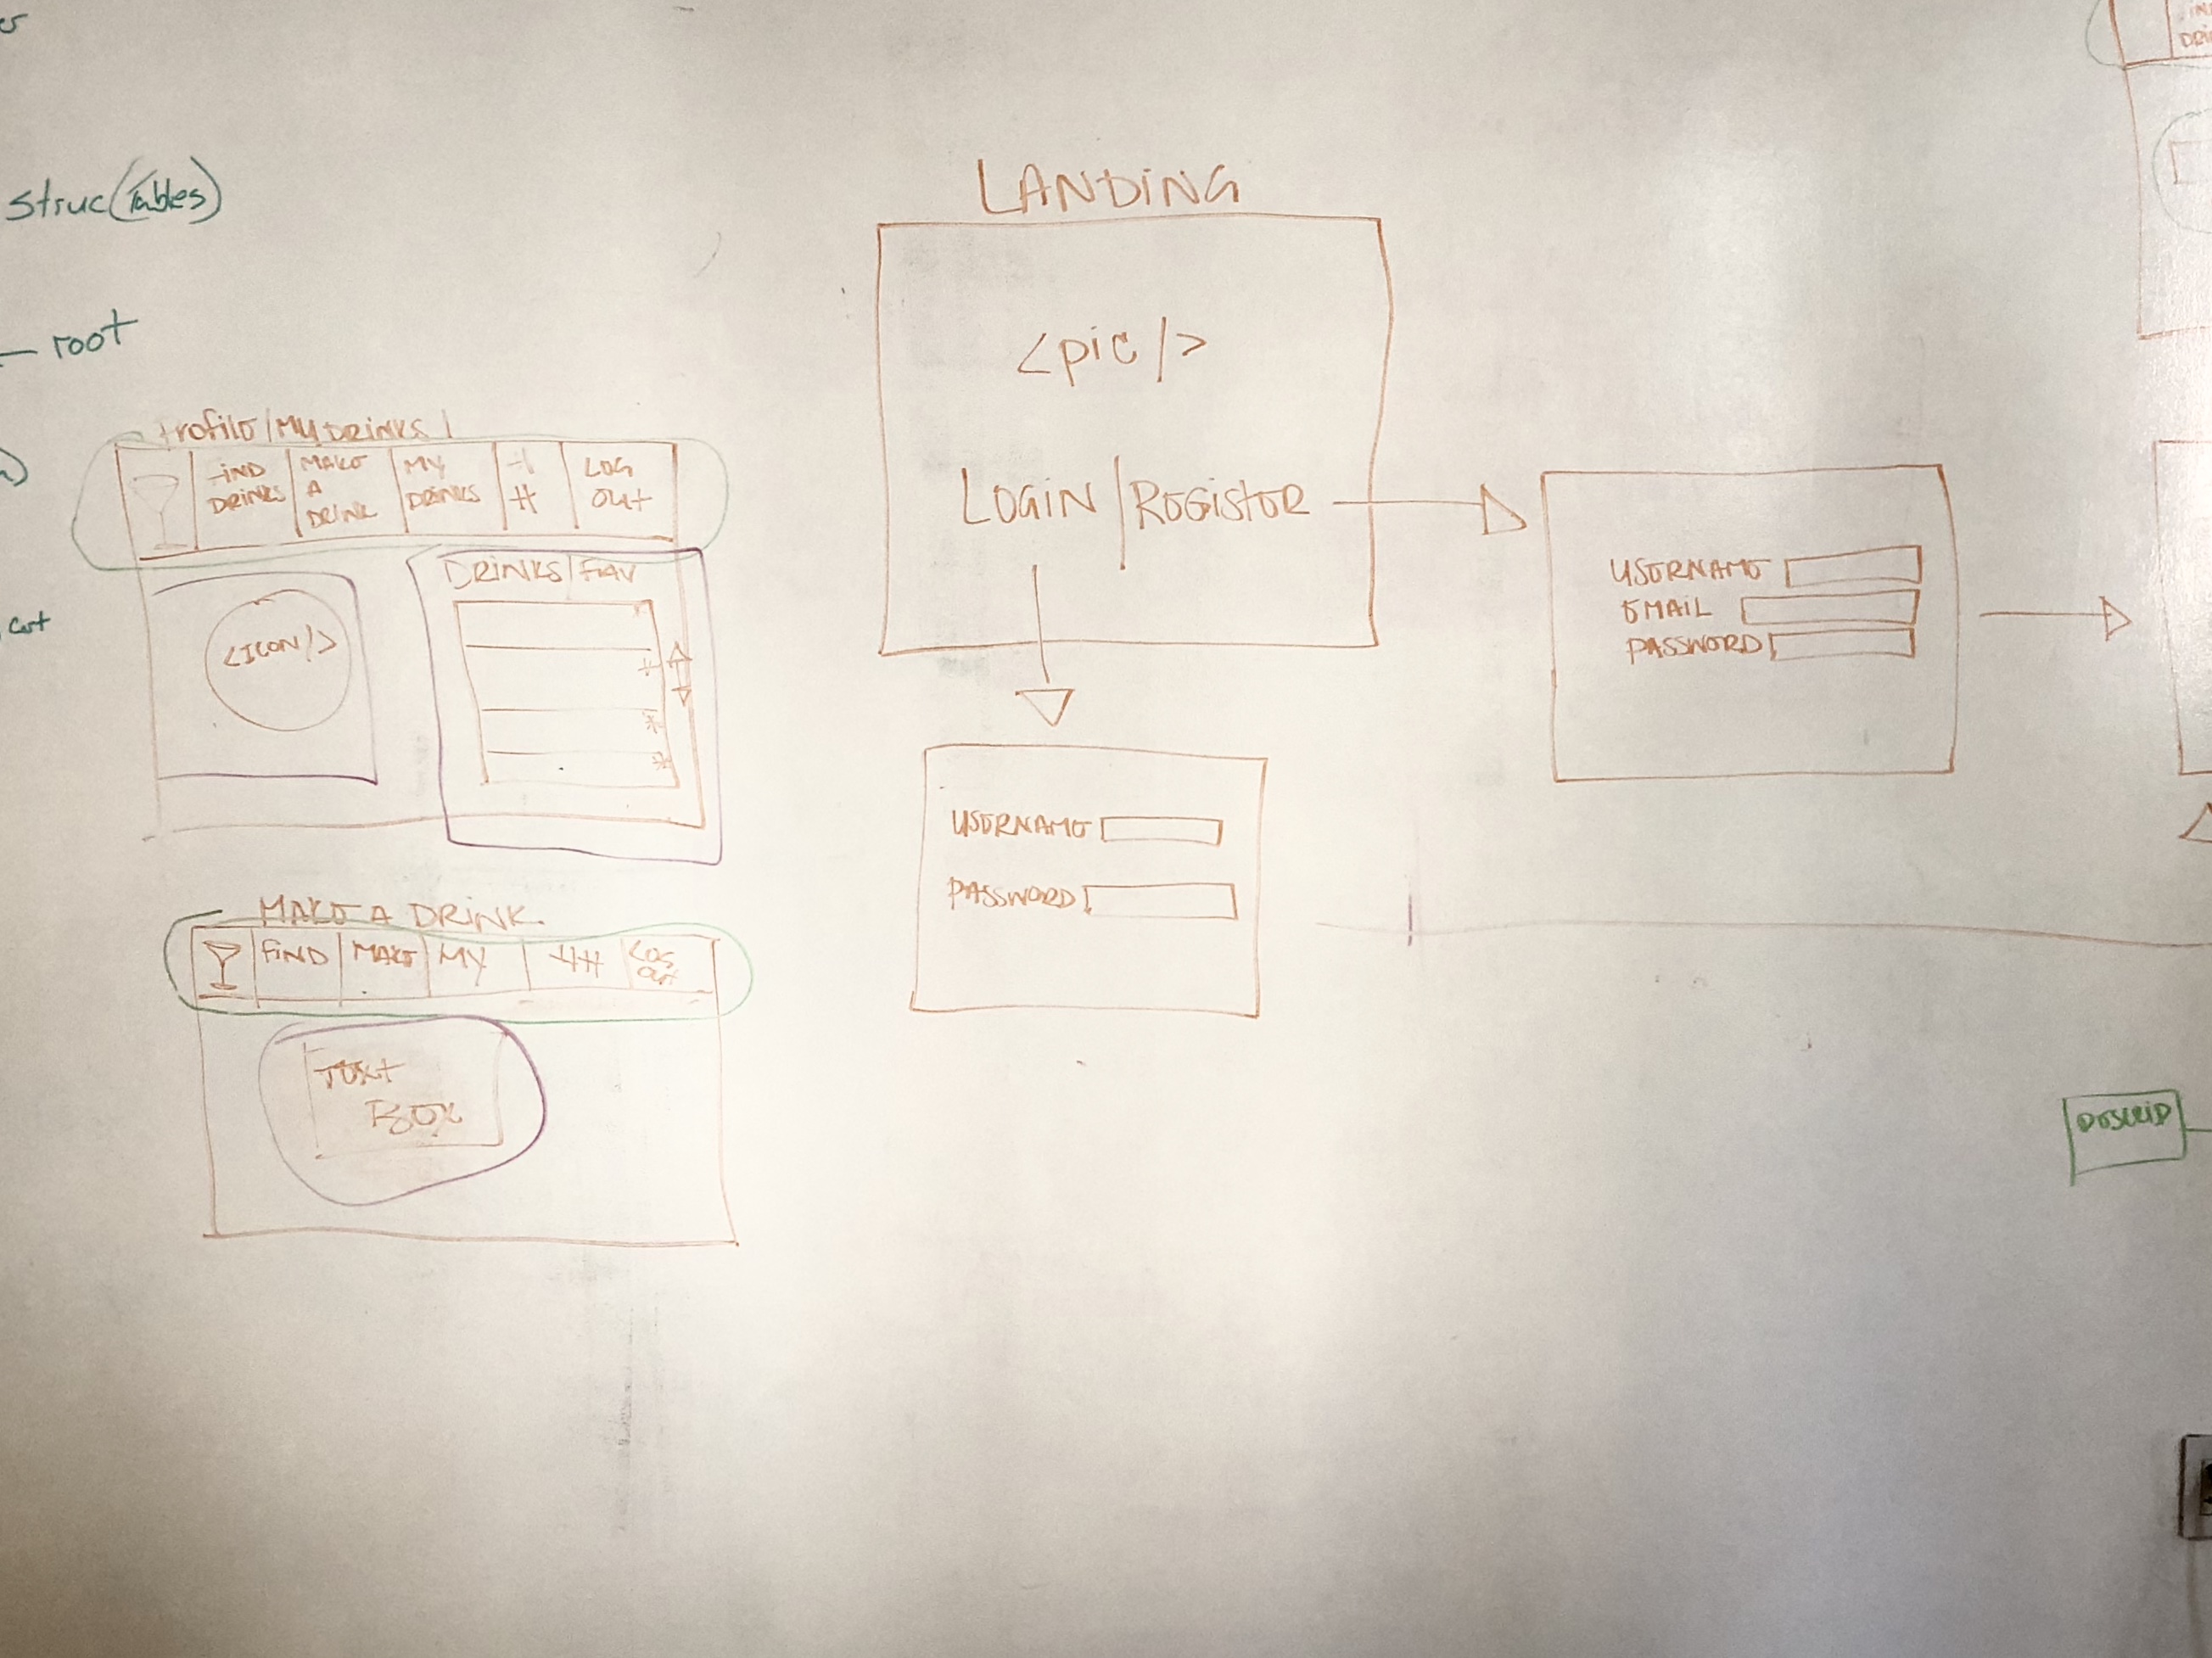 struc (Tables)
root
cat
Profile / MY DRINKS
FIND DRINKS
MAKE A DRINK
MY DRINKS
HH
LOG OUT
<ICON/>
DRINKS/FAV
MAKE A DRINK
FIND
MAKE
MY
HH
LOG OUT
TEXT
BOX
LANDING
<pic/>
LOGIN / REGISTER
USERNAME
PASSWORD
USERNAME
EMAIL
PASSWORD